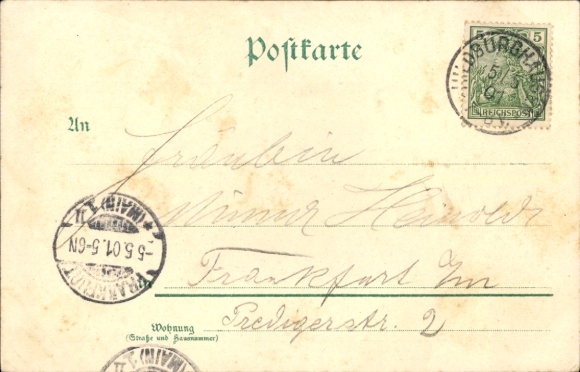 Postkarte
5 5
REICHSPOST
HILDBURGHAUSEN
5/5
01
An
Fräulein
Heinold
Frankfurt a/m
Wohnung
(Straße und Hausnummer)
Predigerstr. 2
FRANKFURT
-5.5.01.5-6N
*(MAIN) 1
(MAIN) 1